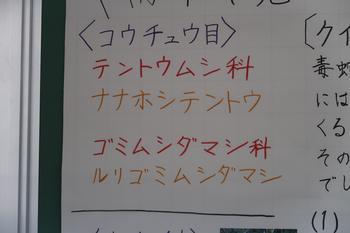 〈コウチュウ目〉
テントウムシ科
ナナホシテントウ
ゴミムシダマシ科
ルリゴミムシダマシ
〔クイ
には
くる
その
でし
(1)